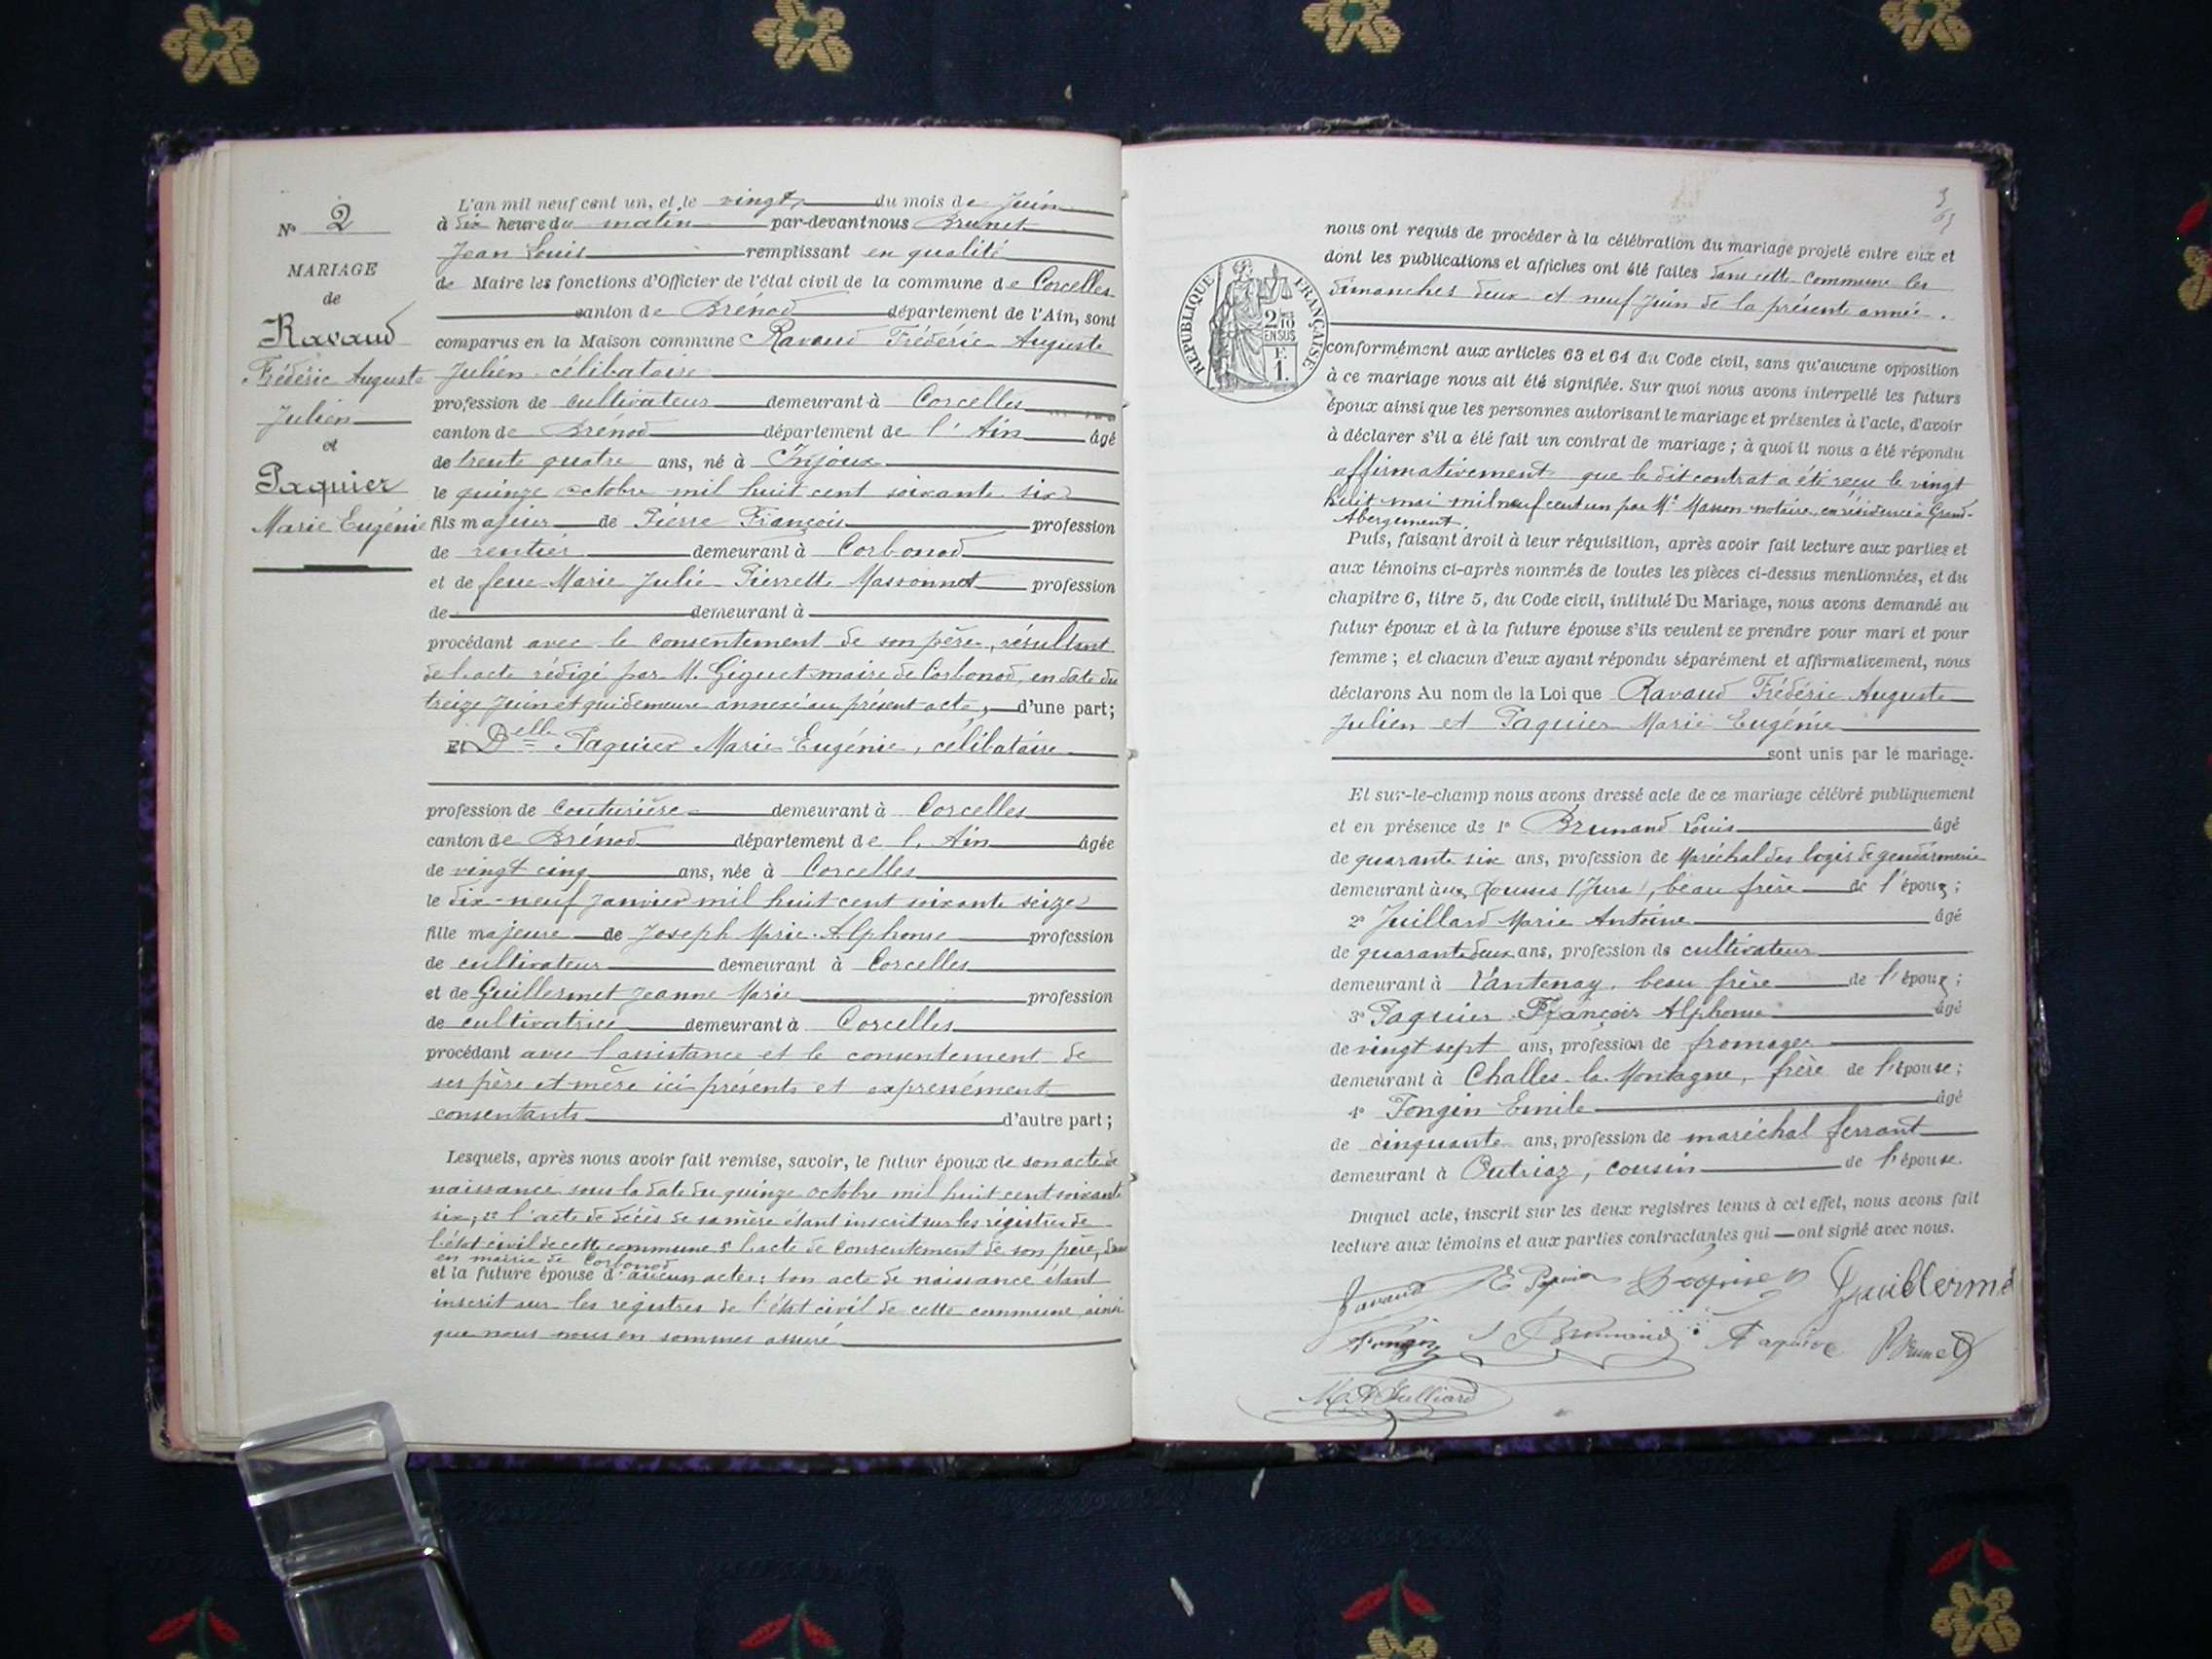 N° 2
MARIAGE
de
Ravaud
Frédéric Auguste
Julien
et
Paquier
Marie Eugénie
L'an mil neuf cent un, et le vingt du mois de Juin
à dix heure du matin par-devant nous Brunet
Jean Louis remplissant en qualité
de Maire les fonctions d'Officier de l'état civil de la commune de Corcelles
canton de Brénod département de l'Ain, sont
comparus en la Maison commune Ravaud Frédéric Auguste
Julien, célibataire
profession de cultivateur demeurant à Corcelles
canton de Brénod département de l'Ain âgé
de trente quatre ans, né à Injoux
le quinze octobre mil huit cent soixante six
fils majeur de Pierre François profession
de rentier demeurant à Corbonod
et de feue Marie Julie Pierrette Massonnet profession
de demeurant à
procédant avec le consentement de son père, résultant
de l'acte rédigé par M. Giguet maire de Corbonod, en date du
treize juin et qui demeure annexé au présent acte, d'une part;
Et Delle Paquier Marie Eugénie, célibataire
profession de couturière demeurant à Corcelles
canton de Brénod département de l'Ain âgée
de vingt cinq ans, née à Corcelles
le dix-neuf Janvier mil huit cent soixante seize
fille majeure de Joseph Marie Alphonse profession
de cultivateur demeurant à Corcelles
et de Guillermet Jeanne Marie profession
de cultivatrice demeurant à Corcelles
procédant avec l'assistance et le consentement de
ses père et mère ici présents et expressément
consentants d'autre part;
Lesquels, après nous avoir fait remise, savoir, le futur époux de son acte de
naissance sous la date du quinze octobre mil huit cent soixante
six, 2° l'acte de décès de sa mère étant inscrit sur les régistres de
l'état civil de cette commune 3° l'acte de consentement de son père,
en mairie de Corbonod
et la future épouse d'aucun actes: son acte de naissance étant
inscrit sur les registres de l'état civil de cette commune, ainsi
que nous nous en sommes assuré
3
REPUBLIQUE FRANÇAISE
2/10
EN SUS
F.
1.
nous ont requis de procéder à la célébration du mariage projeté entre eux et
dont les publications et affiches ont été faites dans cette commune les
dimanches deux et neuf Juin de la présente année.
conformément aux articles 63 et 64 du Code civil, sans qu'aucune opposition
à ce mariage nous ait été signifiée. Sur quoi nous avons interpellé les futurs
époux ainsi que les personnes autorisant le mariage et présentes à l'acte, d'avoir
à déclarer s'il a été fait un contrat de mariage; à quoi il nous a été répondu
affirmativement que le dit contrat a été reçu le vingt
huit mai mil neuf cent un par Me Masson notaire, en résidence à Grand-
Abergement.
Puis, faisant droit à leur réquisition, après avoir fait lecture aux parties et
aux témoins ci-après nommés de toutes les pièces ci-dessus mentionnées, et du
chapitre 6, titre 5, du Code civil, intitulé Du Mariage, nous avons demandé au
futur époux et à la future épouse s'ils veulent se prendre pour mari et pour
femme; et chacun d'eux ayant répondu séparément et affirmativement, nous
déclarons Au nom de la Loi que Ravaud Frédéric Auguste
Julien et Paquier Marie Eugénie
sont unis par le mariage.
Et sur-le-champ nous avons dressé acte de ce mariage célébré publiquement
et en présence de 1° Brunand Louis âgé
de quarante six ans, profession de Maréchal des logis de gendarmerie
demeurant aux Rousses (Jura), beau frère de l'époux;
2° Juillard Marie Antoine âgé
de quarante deux ans, profession de cultivateur
demeurant à Vantenay, beau frère de l'époux;
3° Paquier François Alphonse âgé
de vingt sept ans, profession de fromager
demeurant à Challes la Montagne, frère de l'épouse;
4° Tongin Emile âgé
de cinquante ans, profession de maréchal ferrant
demeurant à Outriaz, cousin de l'épouse.
Duquel acte, inscrit sur les deux registres tenus à cet effet, nous avons fait
lecture aux témoins et aux parties contractantes qui — ont signé avec nous.
Ravaud E Paquier Paquier Guillermet
Tongin Brunand Paquier Brunet
M. A Juilliard